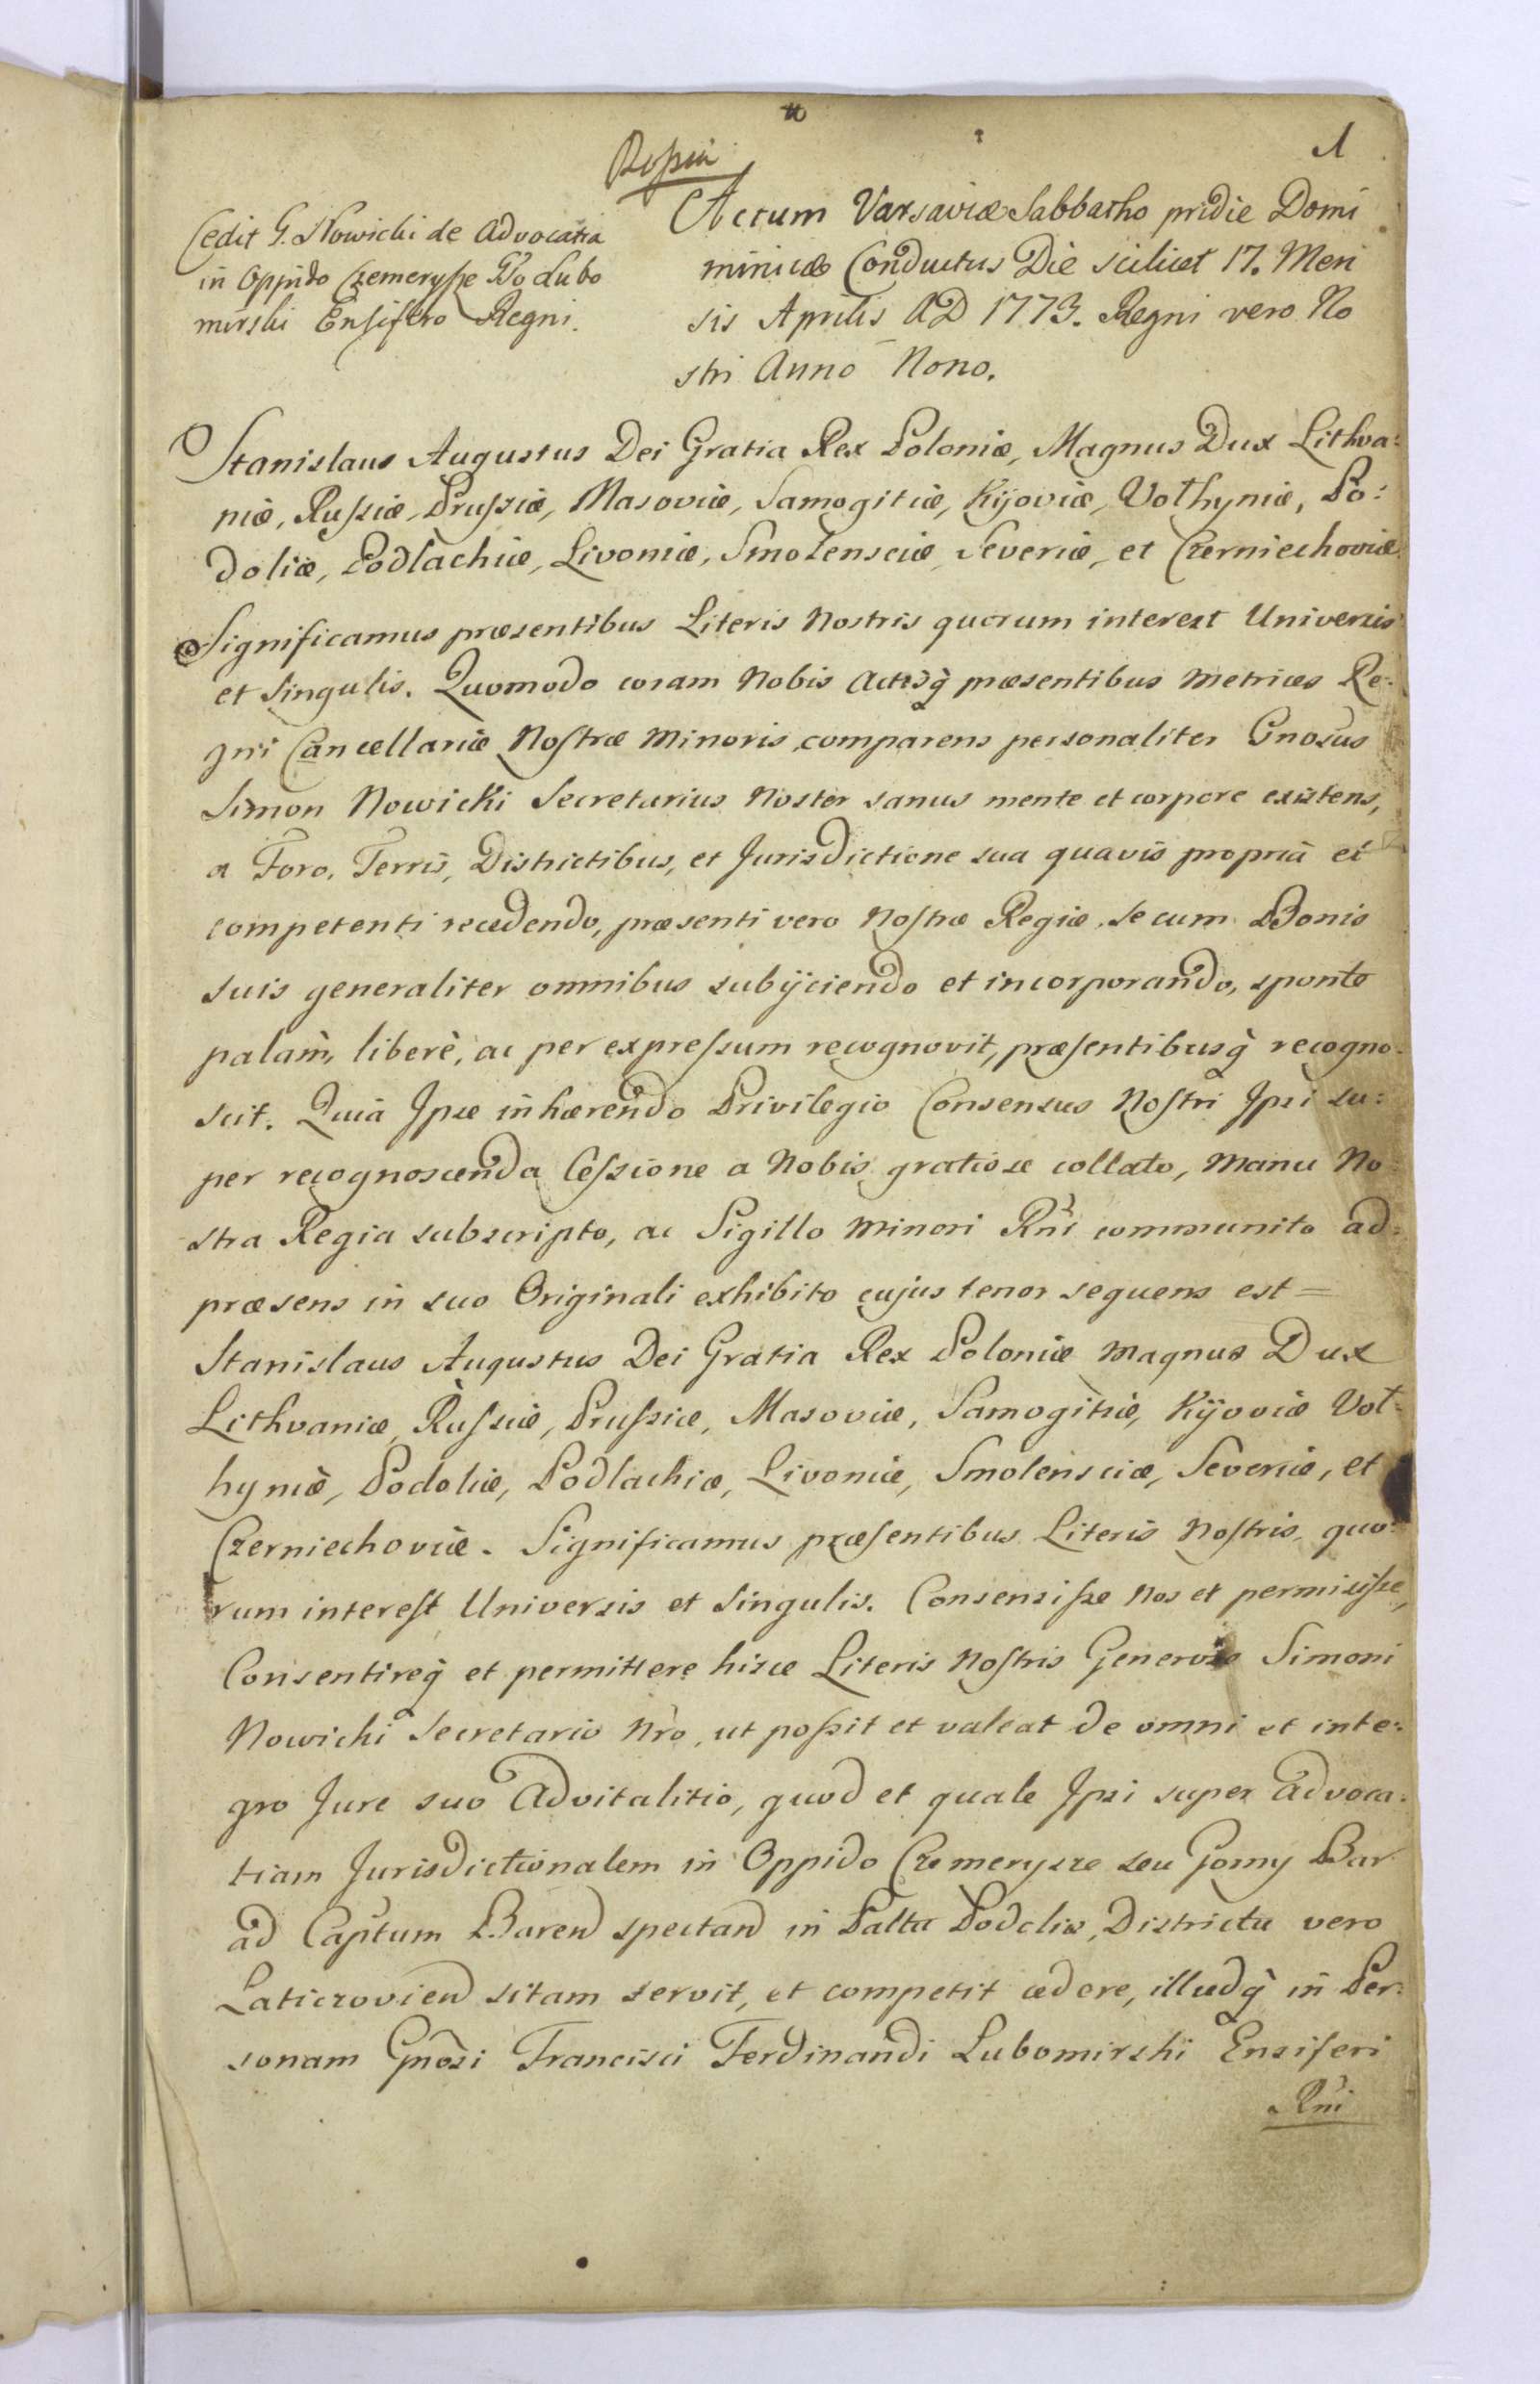 1
Rossia
Cedit G. Nowicki de Advocatia
in Oppido Czemerysze Gso Lubo
mirski Ensifero Regni.
Actum Varsaviæ Sabbatho pridie Domi
minicæ Conductus Die scilicet 17. Men
sis Aprilis AD 1773. Regni vero No
stri Anno Nono.
Stanislaus Augustus Dei Gratia Rex Poloniæ, Magnus Dux Lithva:
niæ, Russiæ, Prussiæ, Masoviæ, Samogitiæ, Kijoviæ, Volhyniæ, Po:
doliæ, Podlachiæ, Livoniæ, Smolensciæ, Severiæ, et Czerniechoviæ.
Significamus præsentibus Literis Nostris quorum interest Universis
et Singulis. Quomodo coram Nobis Actisq̀ præsentibus Metrices Re:
gni Cancellariæ Nostræ Minoris, comparens personaliter Gnosus
Simon Nowicki Secretarius Noster sanus mente et corpore existens,
a Foro, Terris, Districtibus, et Jurisdictione sua quavis propria et
competenti recedendo, præsenti vero Nostræ Regiæ, se cum Bonis
suis generaliter omnibus subijciendo et incorporando, sponte
palam, liberè, ac per expressum recognovit, præsentibusq̀ recogno:
scit. Quia Ipse inhærendo Privilegio Consensus Nostri Ipsi su:
per recognoscenda Cessione a Nobis gratiose collato, Manu No
stra Regia subscripto, ac Sigillo Minori Rni communito ad:
præsens in suo Originali exhibito cujus tenor sequens est =
Stanislaus Augustus Dei Gratia Rex Poloniæ Magnus Dux
Lithvaniæ, Russiæ, Prussiæ, Masoviæ, Samogitiæ, Kijoviæ Vol:
hyniæ, Podoliæ, Podlachiæ, Livoniæ, Smolensciæ, Severiæ, et
Czerniechoviæ. Significamus præsentibus Literis Nostris, quo:
rum interest Universis et Singulis. Consensisse Nos et permisisse,
Consentireq̀ et permittere hisce Literis Nostris Generoso Simoni
Nowicki Secretario Nro, ut possit et valeat de omni et inte:
gro Jure suo Advitalitio, quod et quale Ipsi super Advoca:
tiam Jurisdictionalem in Oppido Czemerysze seu Gorny Bar
ad Captum Baren spectan in Palttu Podoliæ, Districtu vero
Laticzovien sitam servit, et competit cedere, illudq̀ in Per:
sonam Gnosi Francisci Ferdinandi Lubomirski Ensiferi
Rni